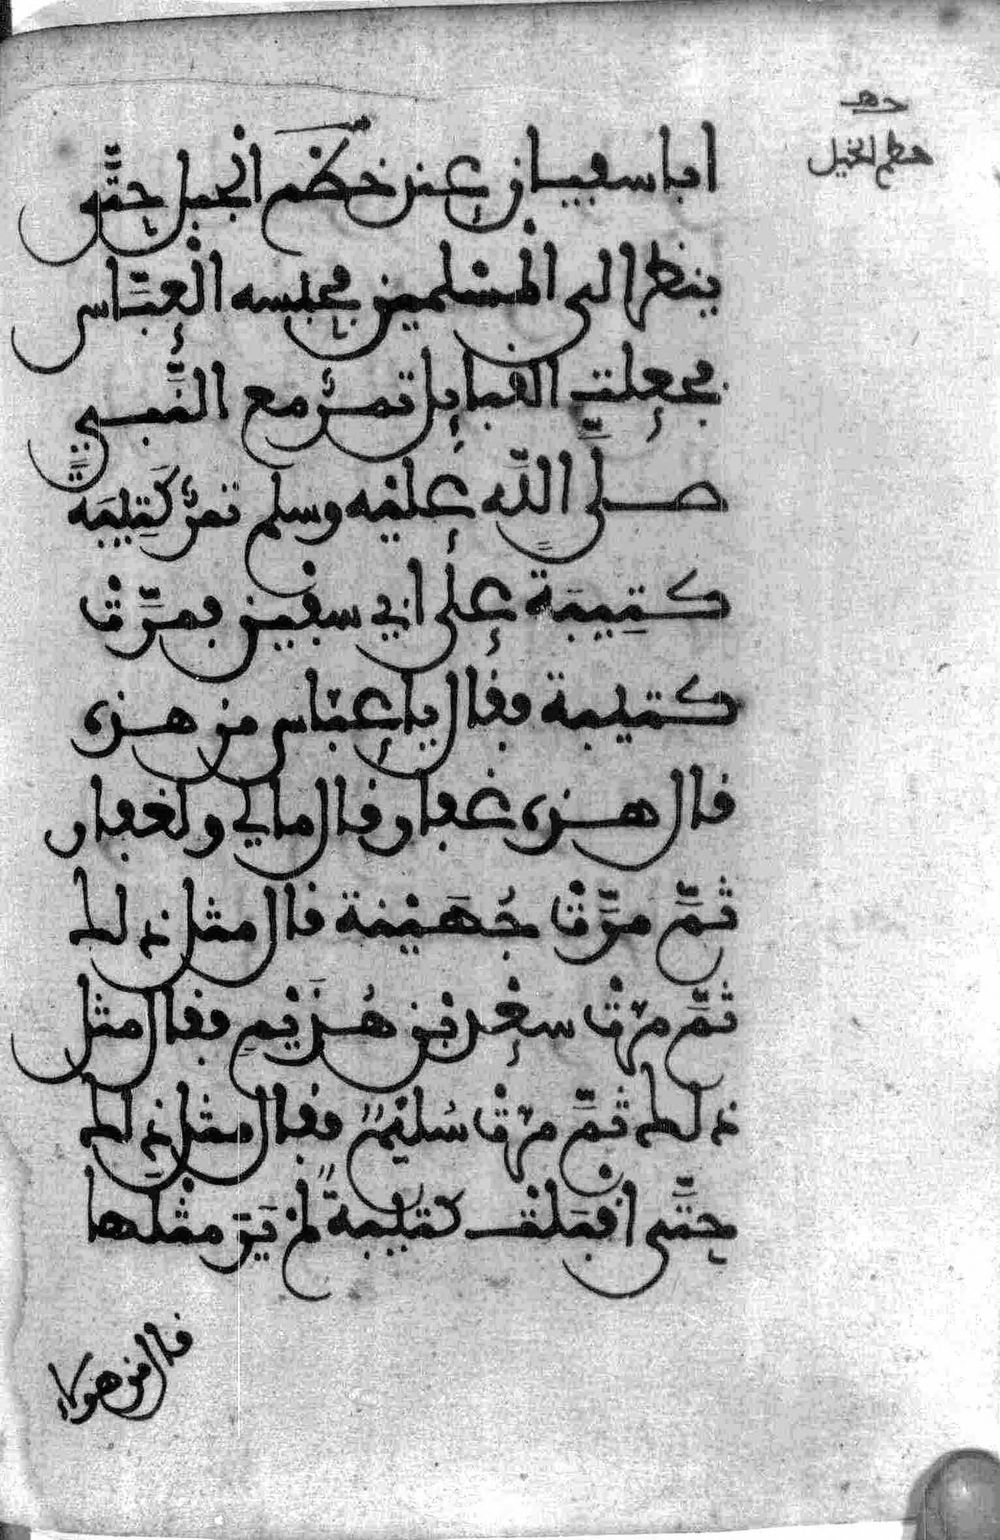 حطم الخيل
ابا سفيان عند خطم الجبل حتّى
ينظر الى المسْلمين فحبسه العبّاس
فجعلت القبايل تمرّ مع النّبي
صلّى اللّه عليْه وسلم تمرّ كَتِيبَةً
كتِيبَة على أبي سفين فمرّتْ
كتيبة فقال يا عبّاس من هذه
قال هذه غفار قال مالي ولغفار
ثمّ مرّتْ جُهَيْنة قال مثل ذلك
ثمّ مرتْ سعْد بن هُذَيْمٍ فقال مثل
ذلك ثمّ مرتْ سُليْمٌ فقال مثل ذلك
حتّى اقبلتْ كتيبةٌ لمْ يَرَ مثْلها
قال من هولاء